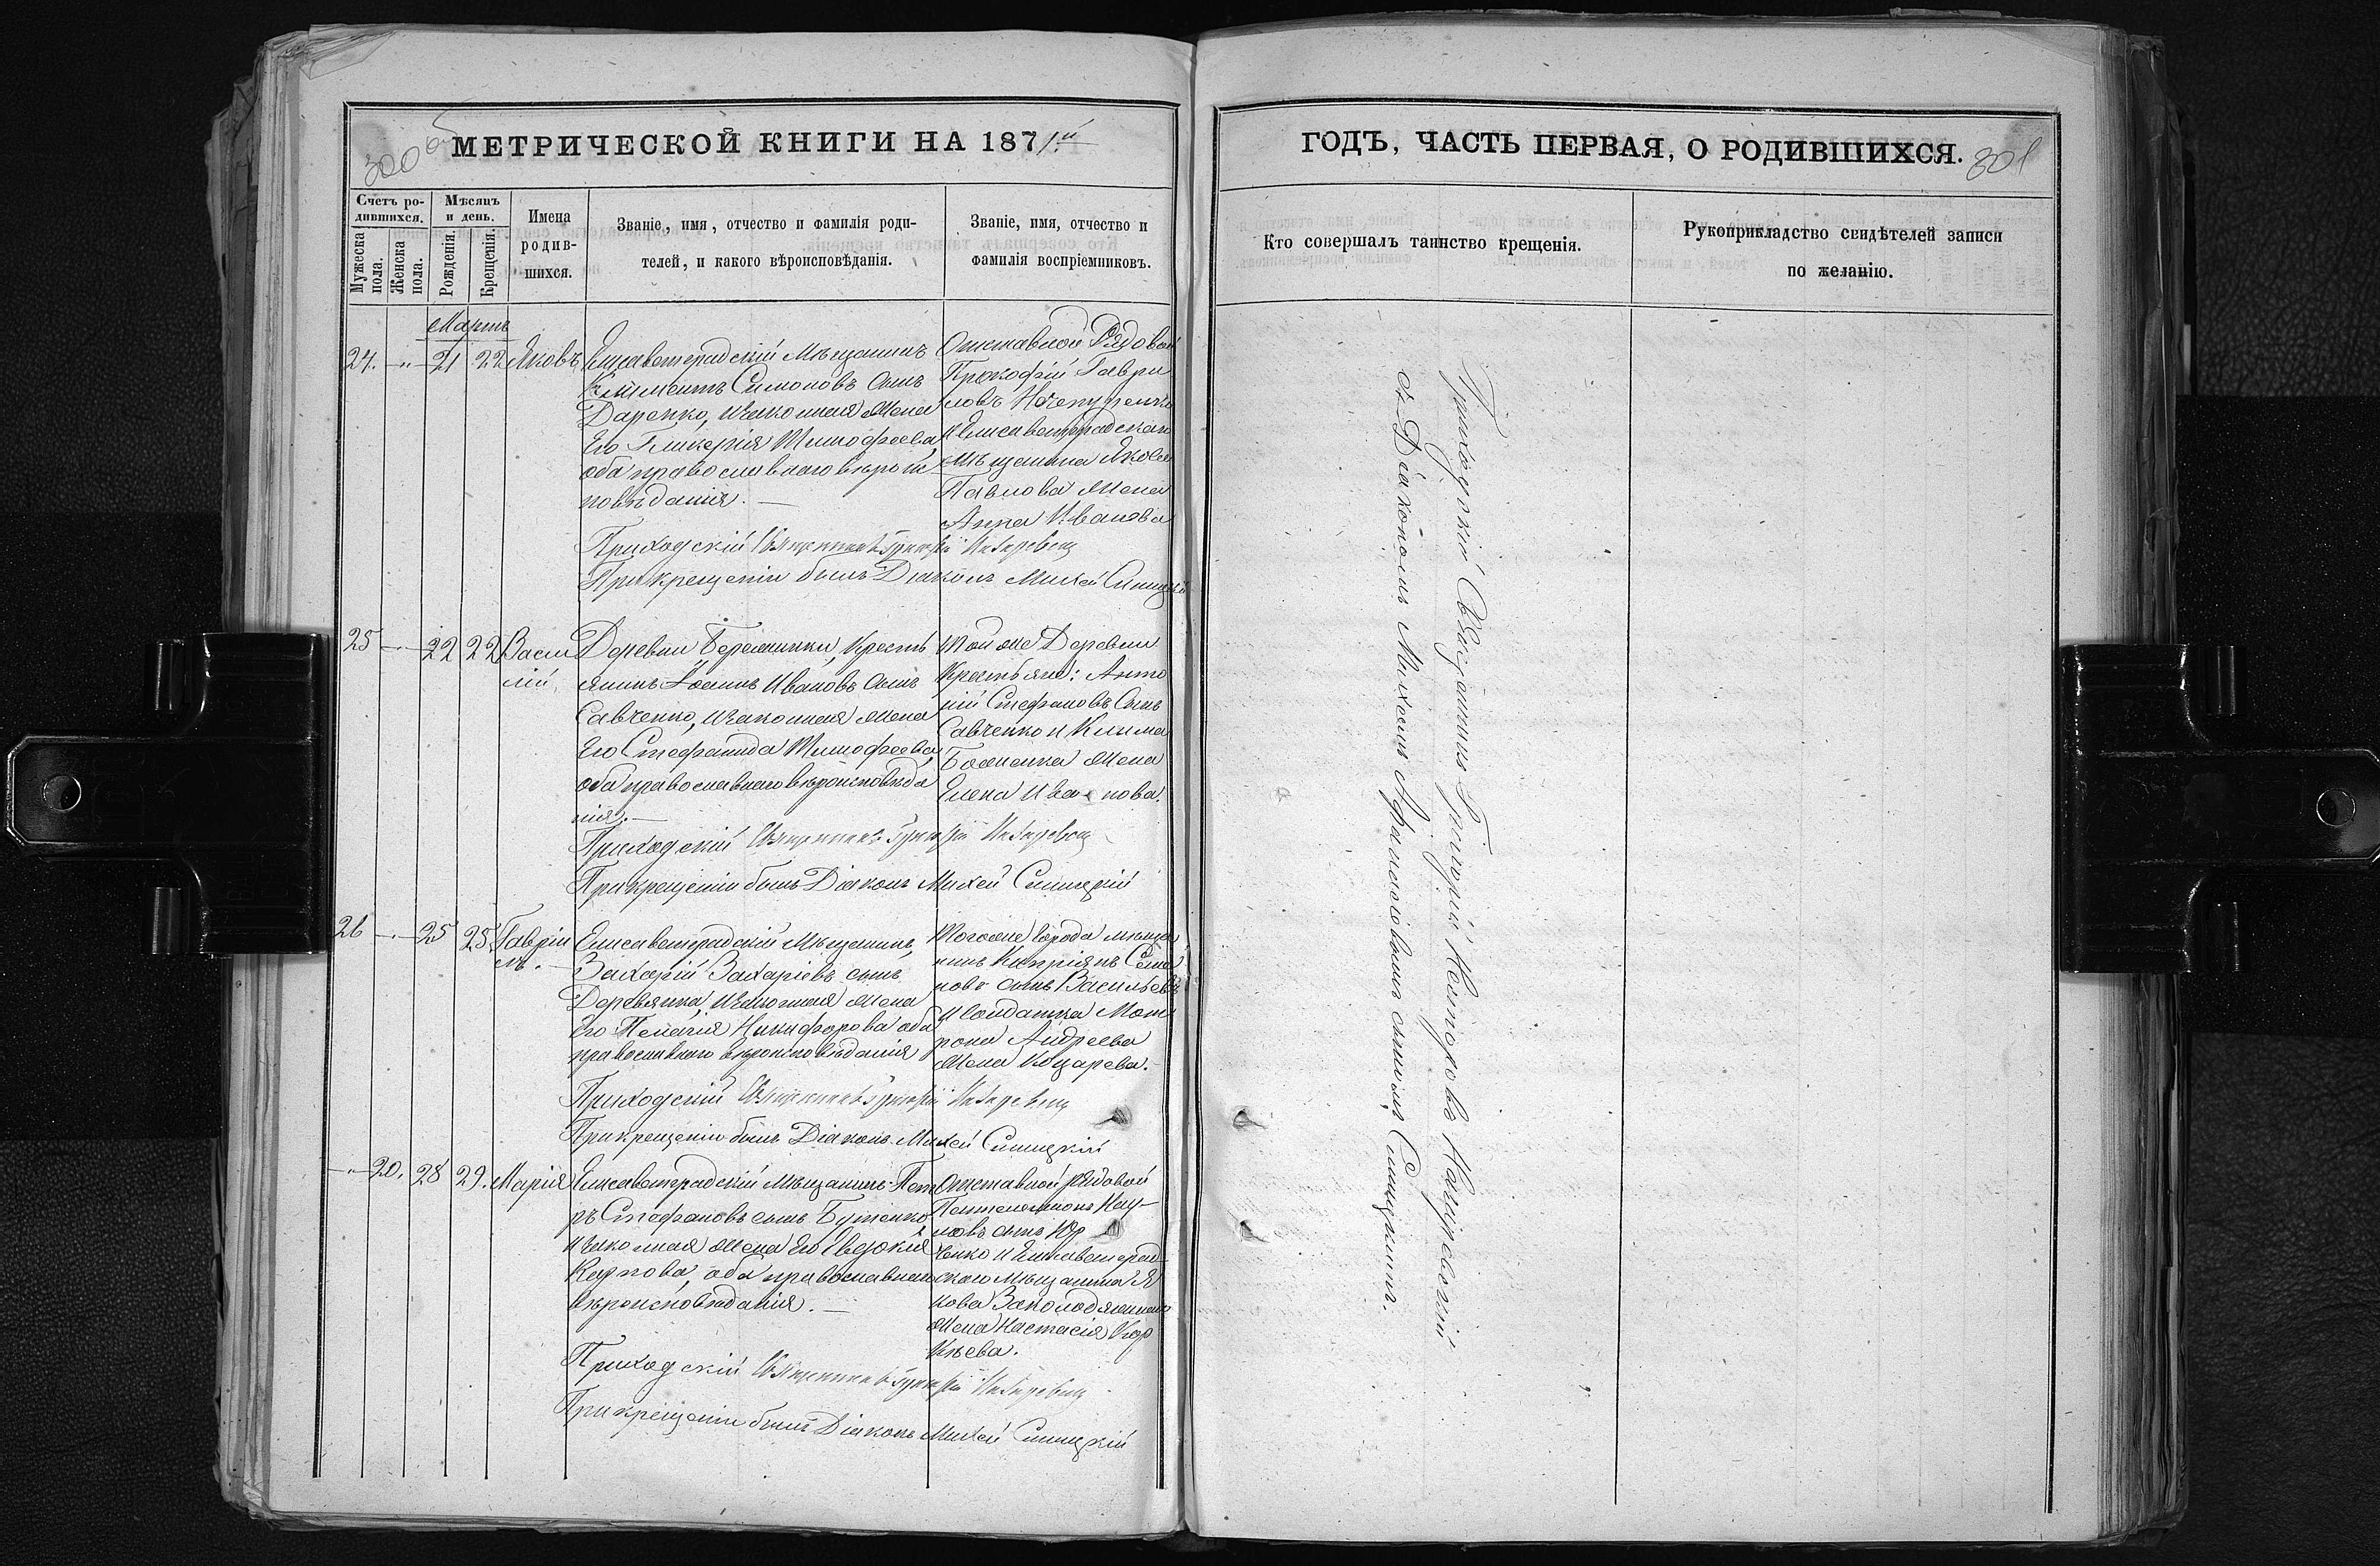 300 об
МЕТРИЧЕСКОЙ КНИГИ НА 1871й
Счетъ ро-
дившихся.
Мужеска
пола.
Женска
пола.
Мѣсяцъ
и день.
Рожденія.
Крещенія.
Имена
родив-
шихся.
Званіе, имя, отчество и фамилія роди-
телей, и какого вѣроисповѣданія.
Званіе, имя, отчество и
фамилія воспріемниковъ.
Мартъ
24. -"- 21 22 Яковъ
Елисаветградскій Мѣщанинъ
Климентъ Симоновъ сынъ
Даренко, и законная жена
Его Гликерія Тимофеева,
оба православнаго вѣроис
повѣданія. —
Отставной Рядовой
Прокофій Гаври
ловъ Нечепуренко
и Елисаветградскаго
Мѣщанина Якова
Павлова Жена
Анна Иванова
Приходскій Священникъ Григорій
При крещеніи былъ Діаконъ Михей Синицкій
25 -"- 22 22 Васи
лій.
Деревни Бережинки, Кресть
янинъ Іоаннъ Ивановъ сынъ
Савченко, и законная жена
Его Стефанида Тимофеева,
оба православнаго вѣроисповѣда
нія. —
Той же Деревни
Крестьяне: Анто
ній Стефановъ Сынъ
Савченко и Клима
Жена
Елена Ива нова.
Приходскій Священникъ Григорій
При крещеніи былъ Діаконъ Михей Синицкій
26 -"- 25 25. Гавріи
лъ. —
Елисаветградскій Мѣщанинъ,
Захарій Захаріевъ сынъ
Деревянка, и законная жена
Его Пелагія Никифорова оба
православнаго вѣроисповѣданія
Тогоже города мѣща
нинъ Кипріянъ Семе
новъ сынъ Васильевъ
и солдатка Мат
рона Андреева
Жена Коцарева. -
Приходскій Священникъ Григорій
При крещеніи былъ Діаконъ Михей Синицкій
-"- 20. 28 29. Марія
Елисаветградскій Мѣщанинъ Пет
ръ Стефановъ сынъ Бутенко,
и законная жена Его Евдокія
Карпова, оба православнаго
вѣроисповѣданія. —
Отставной рядовой
Пантелеимонъ Нау-
мовъ сынъ Юр
ченко и Елисаветград-
скаго Мѣщанина Я
кова
Жена Настасія Кор
нѣева.
Приходскій Священникъ Григорій
При крещеніи былъ Діаконъ Михей Синицкій
ГОДЪ, ЧАСТЬ ПЕРВАЯ, О РОДИВШИХСЯ.
301
Кто совершалъ таинство крещенія.
Рукоприкладство свидѣтелей записи
по желанію.
Приходскій Священникъ Григорій
съ Діакономъ Михеемъ Синицкимъ.